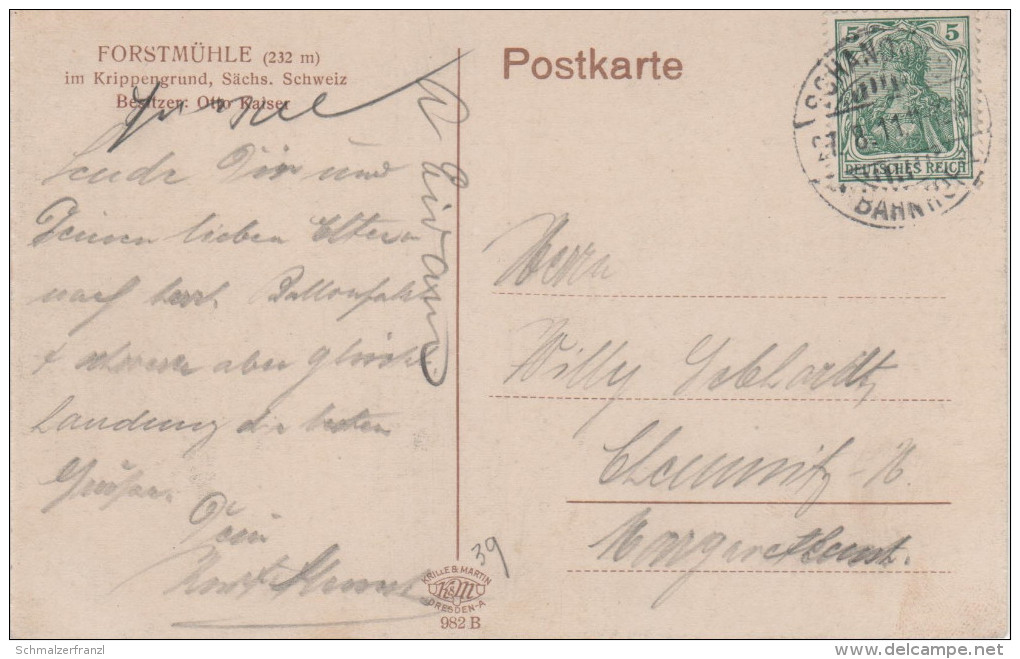 FORSTMÜHLE (232 m)
im Krippengrund, Sächs. Schweiz
Besitzer: Otto Kaiser
Postkarte
5 5
DEUTSCHES REICH
SCHANDAU
8.11.
BAHNHOF
Sende Dir und
Deinen lieben Eltern
nach Ballonfahrt
schwerer aber glückl.
Landung die besten
Grüße.
Dein
Kurt
Herrn
Willy Gebhardt,
Chemnitz-
Margarethenst.
39
KRILLE & MARTIN
K&M
DRESDEN-A
982 B
Schmalzerfranzl
delcampe.net